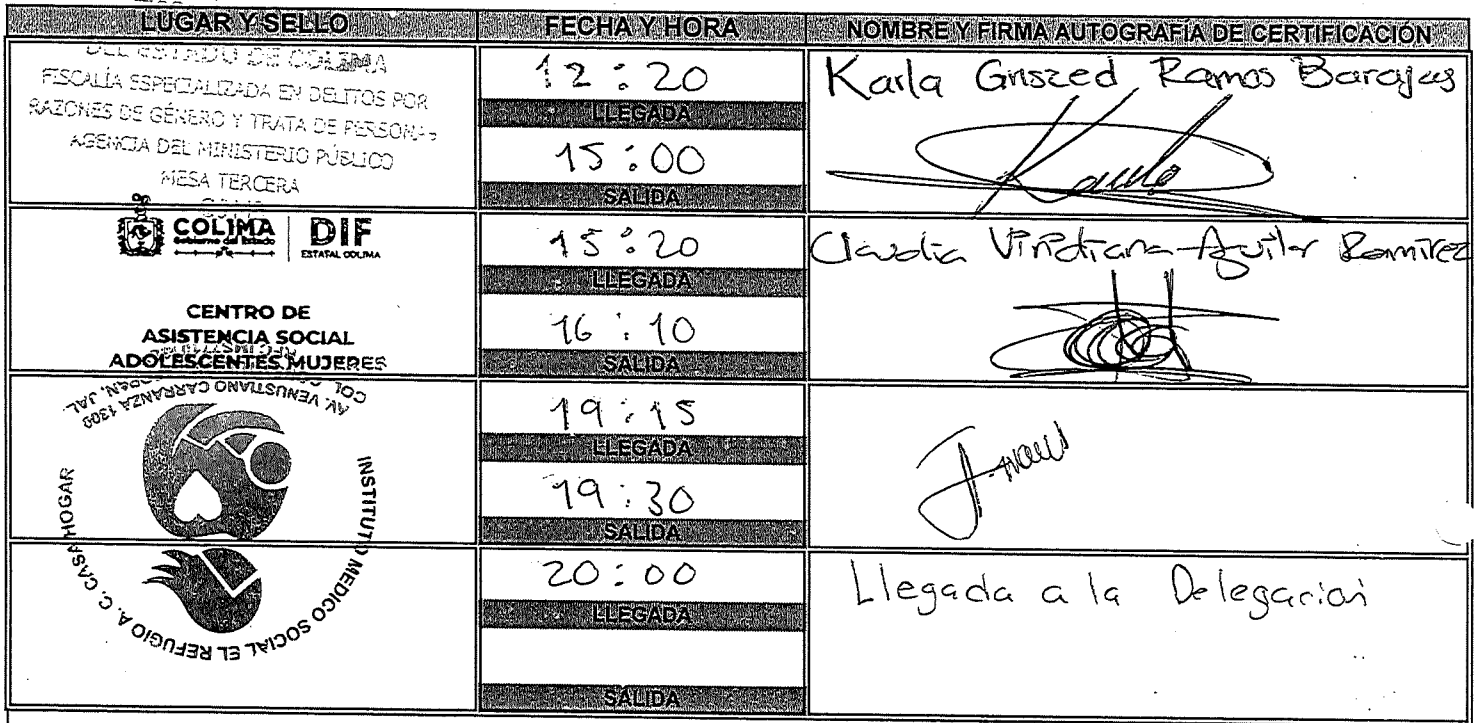 LUGAR Y SELLO
FECHA Y HORA
NOMBRE Y FIRMA AUTOGRAFÍA DE CERTIFICACIÓN
DEL ESTADO DE COLIMA
FISCALÍA ESPECIALIZADA EN DELITOS POR
RAZONES DE GÉNERO Y TRATA DE PERSONAS
AGENCIA DEL MINISTERIO PÚBLICO
MESA TERCERA
12:20
LLEGADA
15:00
SALIDA
Karla Griszed Ramos Barajas
Karla
COLIMA
Gobierno del Estado
DIF
ESTATAL COLIMA
CENTRO DE
ASISTENCIA SOCIAL
ADOLESCENTES MUJERES
15:20
LLEGADA
16:10
SALIDA
Claudia Viridiana Aguilar Ramirez
AV. VENUSTIANO CARRANZA 1309
COL.
JAL.
INSTITUTO MEDICO SOCIAL EL REFUGIO A. C. CASA HOGAR
19:15
LLEGADA
19:30
SALIDA
20:00
LLEGADA
SALIDA
Llegada a la Delegación